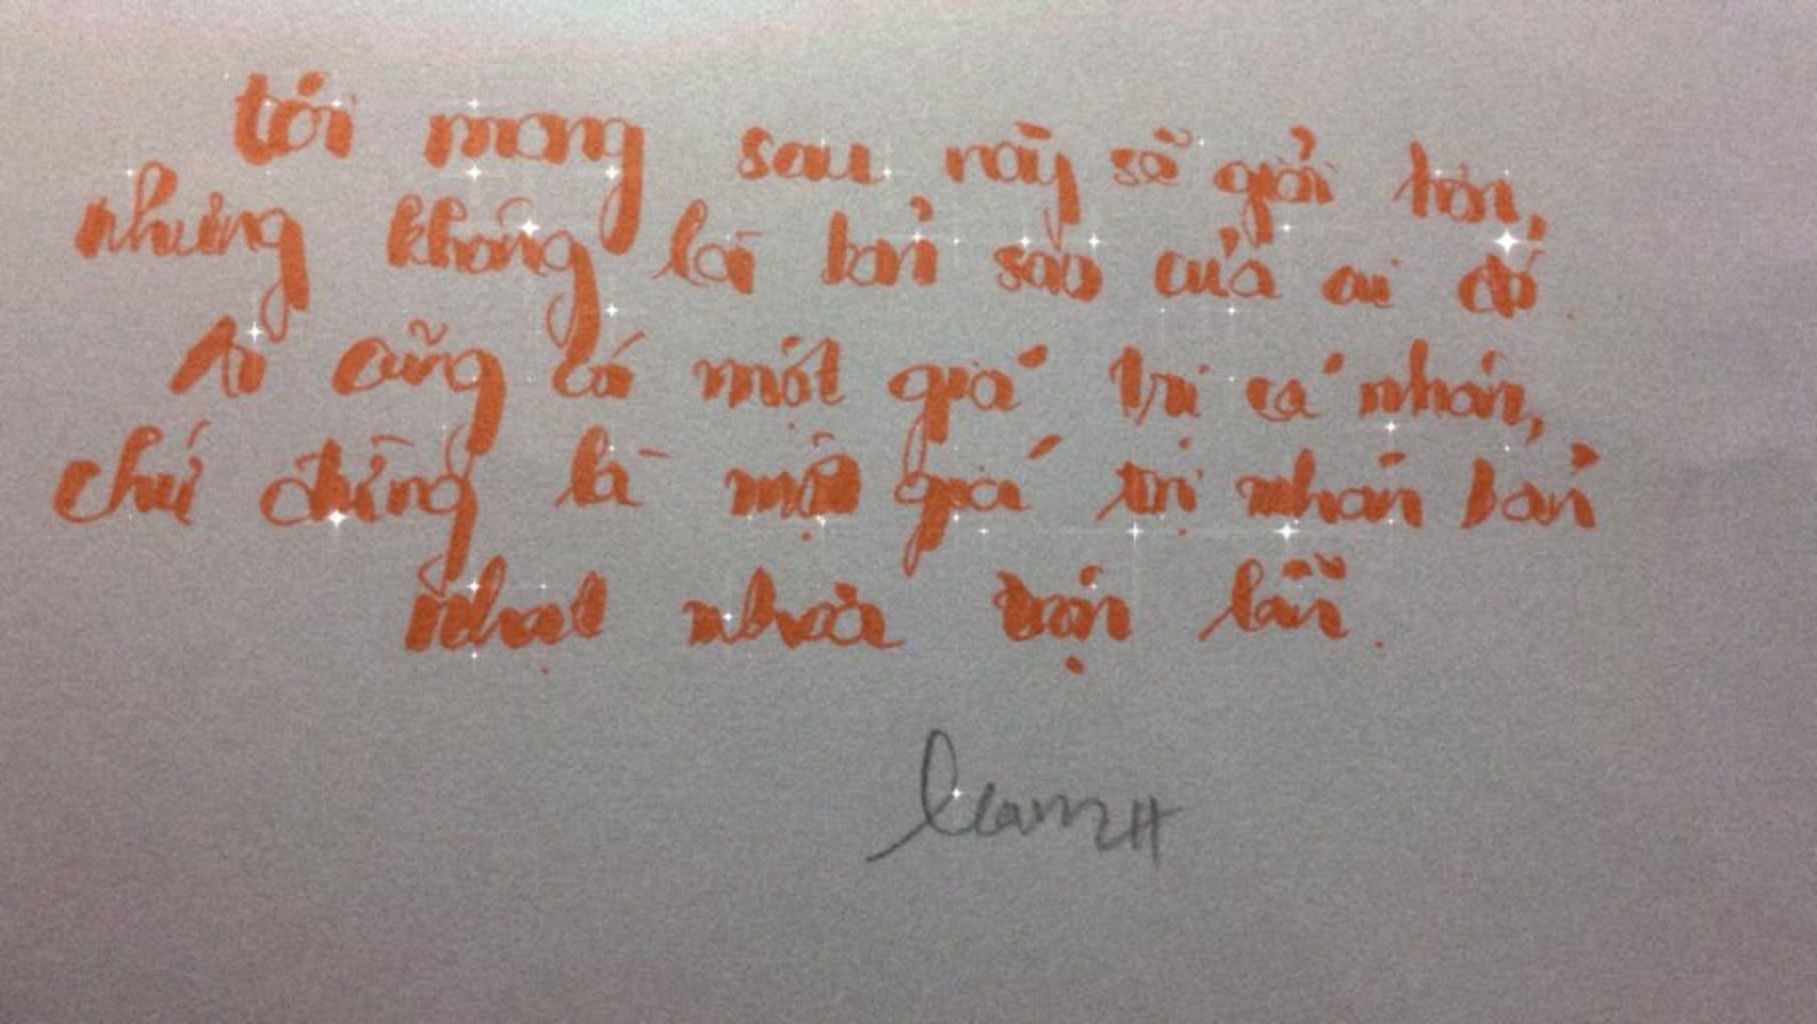 tôi mong sau này sẽ giỏi hơn,
nhưng không là bản sao của ai đó.
Ai cũng có một giá trị cá nhân,
chứ đừng là một giá trị nhân bản
nhạt nhoà vạn lần.